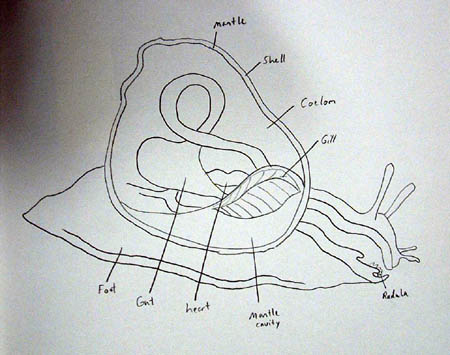 mantle
Shell
Coelom
Gill
Foot
Gut
heart
Mantle
cavity
Radula